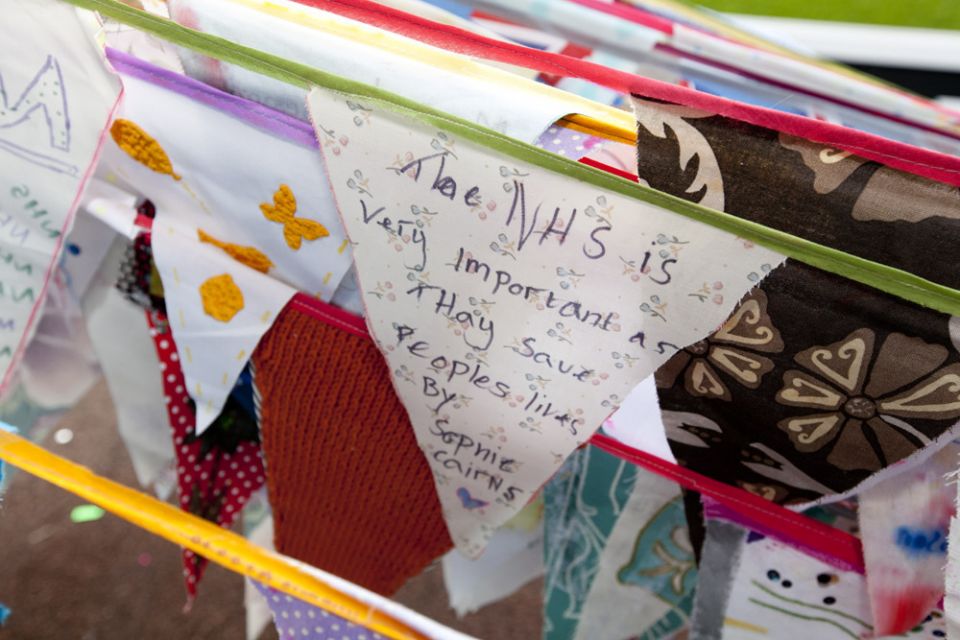 The NHS is
Very Important as
Thay Save
Peoples lives
By
Sophie
Cairns
NHS